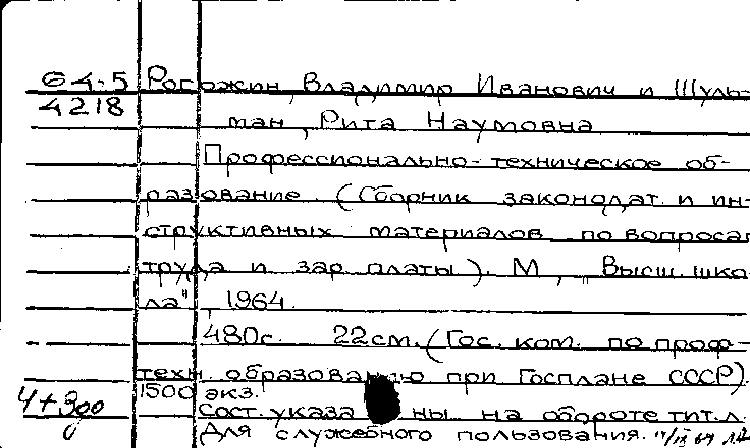 64-5 Рогожин, Владимир Иванович и Шуль-
4218 ман, Рита Наумовна
Профессионально-техническое об-
разование (Сборник законодат. и ин-
структивных материалов по вопросам
труда и зар платы). М., „Высш. шко-
ла", 1964.
480с. 22см. (Гос. ком. по проф-
техн. образованию при Госплане СССР).
1500 экз.
4+3до Сост. указаны на обороте тит. л.
Для служебного пользования.